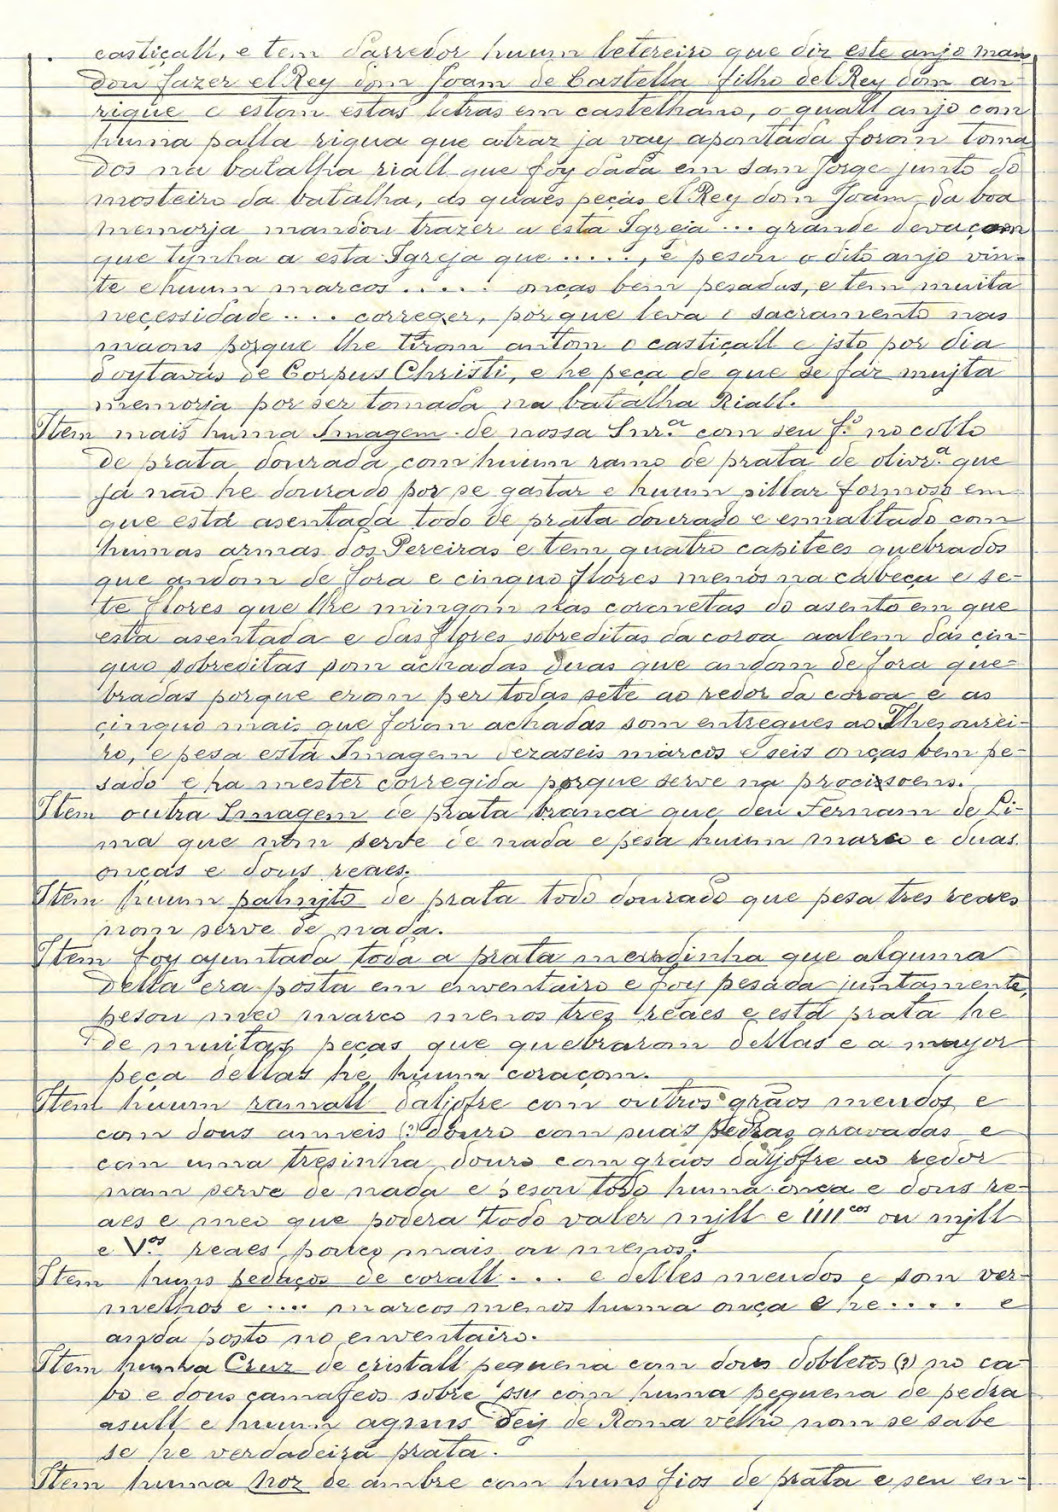 castiçall, e tem darredor huum letereiro que diz este anjo man
dou fazer el Rey dom Joam de Castella filho del Rey dom an
rique e estom estas letras em castelhano, o quall anjo com
huma palla riqua que atraz ja vay apontada foram toma
dos na batalha riall que foy dada em sam Jorge junto do
mosteiro da batalha, as quaes peças el Rey dom Joam da boa
memorja mandou trazer a esta Igreja ... grande devaçam
que tynha a esta Igreja que ....., e pesou o dito anjo vin-
te e huum marcos ..... onças bem pesadas, e tem muita
neçessidade .... correger, por que leva o sacramento nas
maons porque lhe tiram antom o castiçall e jsto por dia
doytavas de Corpus Christi, e he peça de que se faz mujta
memorja por ser tomada na batalha Riall.
Item mais huma Imagem de nossa Snr.ª com seu f.º no collo
de prata dourada com huum ramo de prata de olivr.ª que
já não he dourado por se gastar e huum pillar formoso em
que está asentada todo de prata dourado e esmaltado com
humas armas dos Pereiras e tem quatro capitees quebrados
que andom de fora e cinquo flores menos na cabeça e se-
te flores que lhe mingom nas coronetas do asento em que
está asentada e das flores sobreditas da coroa aalem das cin-
quo sobreditas som achadas duas que andom de fora que-
bradas porque erom per todas sete ao redor da coroa e as
çinquo mais que forom achadas som entregues ao Thesourei-
ro, e pesa esta Imagem dezaseis marcos e seis onças bem pe-
sado e ha mester corregida porque serve na procissoens.
Item outra Imagem de prata branca que deu Fernam de Li-
ma que nom serve de nada e pesa huum marco e duas
onças e dous reaes.
Item huum palmjto de prata todo dourado que pesa tres reaes
nom serve de nada.
Item foy ajuntada toda a prata meudinha que alguma
della era posta em enventairo e foy pesada juntamente,
pesou meo marco menos trez reaes e está prata he
de muitas peças que quebrarom dellas e a mayor
peça dellas he huum coraçom.
Item huum ramall daljofre com outros grãos meudos e
com dous anneis (?) douro com suas pedras gravadas e
com uma tresinha douro com grãos daljofre ao redor
nam serve de nada e pesou todo huma onça e dous re-
aes e meo que podera todo valer mjll e IIIIcos ou mjll
e V.os reaes pouco mais ou menos.
Item huns pedaços de corall ... e delles meudos e som ver-
melhos e .... marcos menos huma onça e he .... e
ainda posto no enventairo.
Item humha Cruz de cristall pequena com dous dobletos (?) no ca
bo e dous camafeos sobre ssu com huma pequena de pedra
asull e huum agnus Deij de Roma velho nom se sabe
se he verdadeira prata.
Item huma noz de ambre com huns fios de prata e seu en-